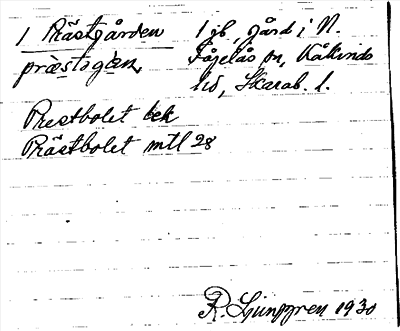 1 Prästgården
præstogáɑn,
1 jb, gård i N.
Fågelås sn, Kåkinds
hd, Skarab. l.
Prestbolet bek
Prästbolet mtl 28
R. Ljunggren 1930